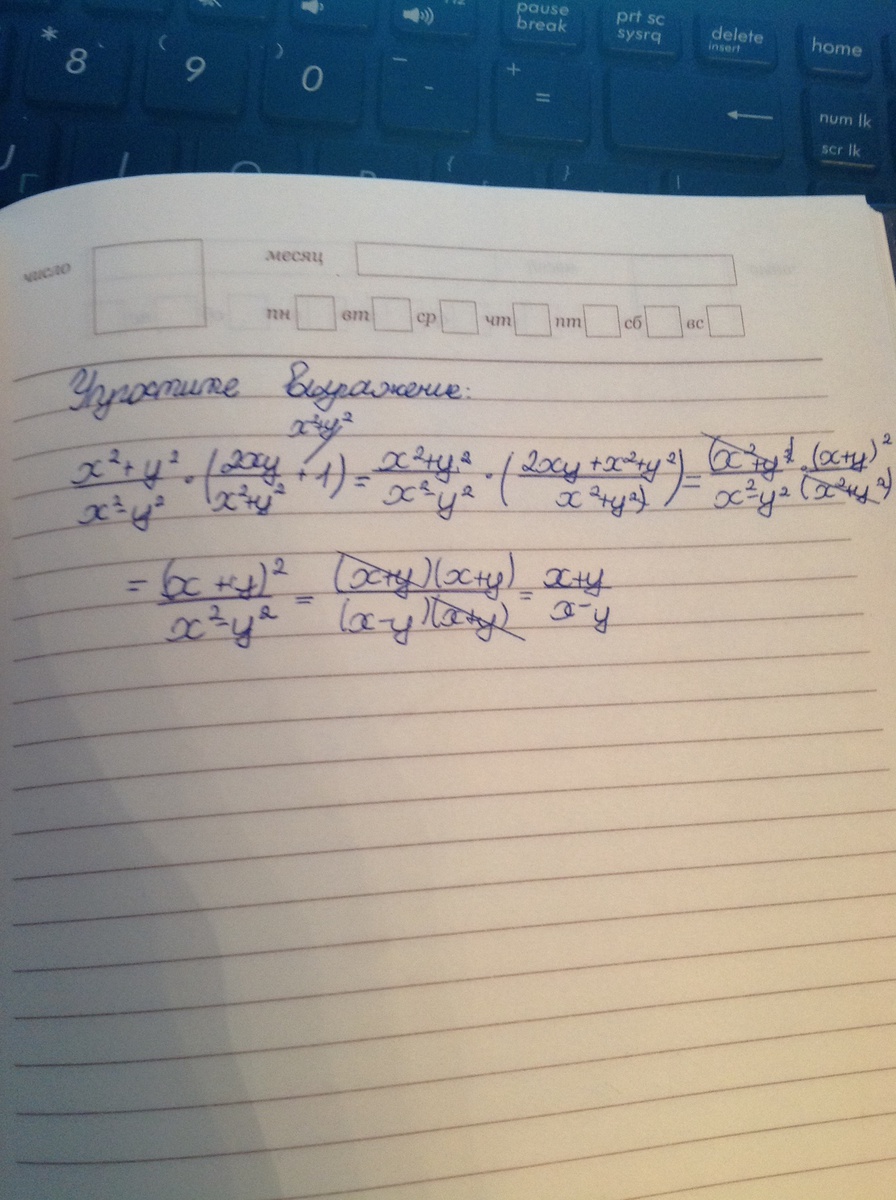 pause break
prt sc sysrq
delete insert
home
* 8
( 9
) 0
- -
+ =
num lk
scr lk
{
}
число
месяц
пн вт ср чт пт сб вс
Упростите выражение:
x²+y²
x²+y² / x²-y² · (2xy / x²+y² + 1) = x²+y² / x²-y² · (2xy+x²+y² / x²+y²) = (x²+y²) · (x+y)² / x²-y² (x²+y²)
= (x+y)² / x²-y² = (x+y)(x+y) / (x-y)(x+y) = x+y / x-y